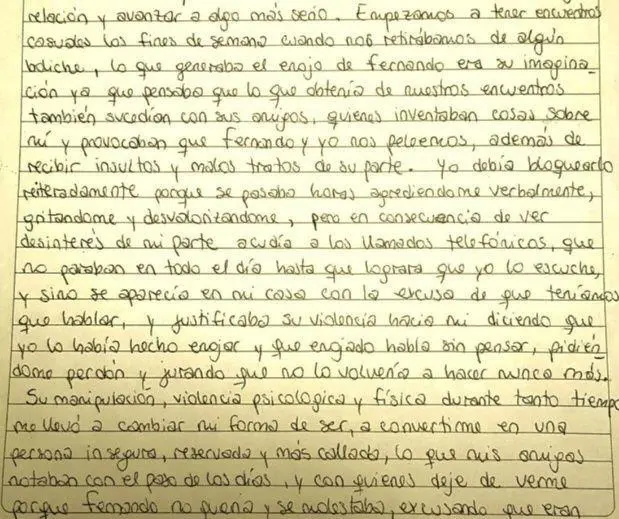 relación y avanzar a algo más serio. Empezamos a tener encuentros
casuales los fines de semana cuando nos retirábamos de algún
boliche, lo que generaba el enojo de fernando era su imagina_
ción ya que pensaba que lo que obtenía de nuestros encuentros
también sucedían con sus amigos, quienes inventaban cosas sobre
mí y provocaban que fernando y yo nos peleemos, además de
recibir insultos y malos tratos de su parte. Yo debía bloquearlo
reiteradamente porque se pasaba horas agrediendome verbalmente,
gritandome y desvalorizandome, pero en consecuencia de ver
desinterés de mi parte acudía a los llamados telefónicos, que
no paraban en todo el día hasta que lograra que yo lo escuche,
y sino se aparecía en mi casa con la excusa de que teníamos
que hablar, y justificaba su violencia hacia mi diciendo que
yo lo había hecho enojar y que enojado habla sin pensar, pidién
dome perdón y jurando que no lo volvería a hacer nunca más.
Su manipulación, violencia psicológica y física durante tanto tiempo
me llevó a cambiar mi forma de ser, a convertirme en una
persona insegura, reservada y más callada, lo que mis amigas
notaban con el paso de los días, y con quienes deje de verme
porque fernando no quería y se molestaba, excusando que eran